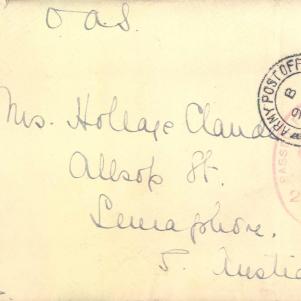 O.A.S.
Mrs. Hollage
Allsop St.
Semaphore.
S. Austra
ARMY POST OFF
B
PASS